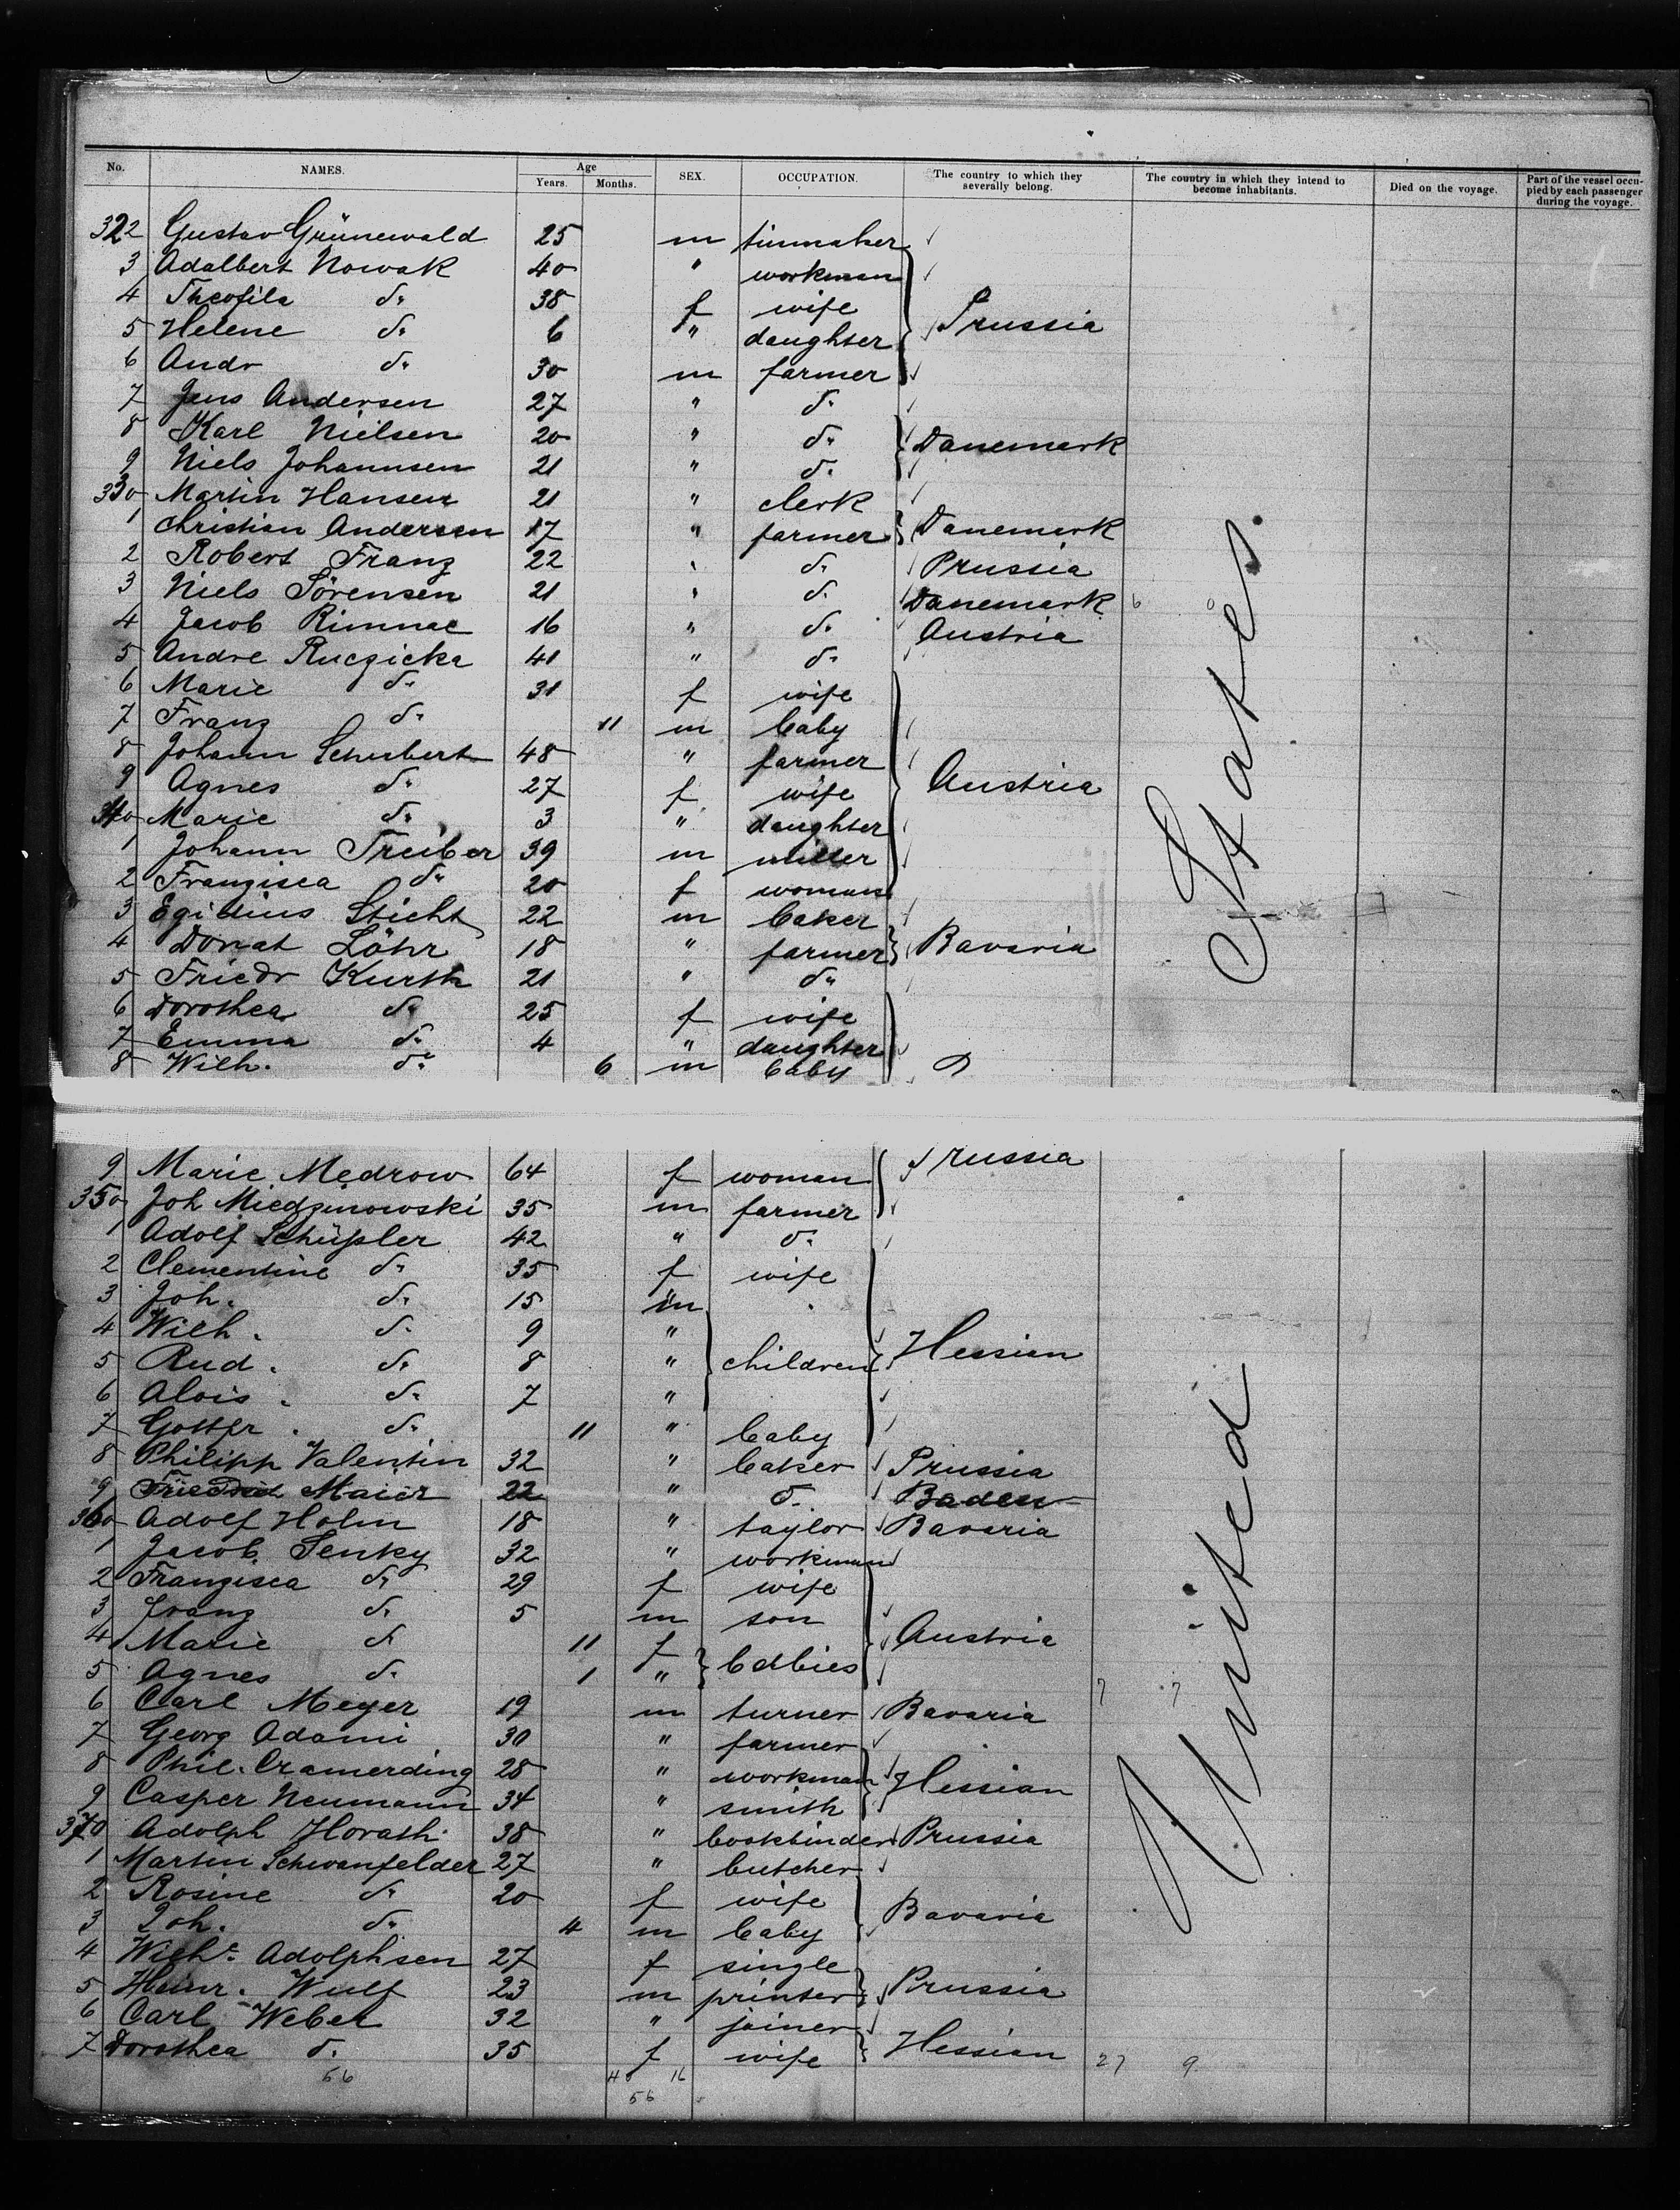 No. NAMES. Age Years. Months. SEX. OCCUPATION. The country to which they severally belong. The country in which they intend to become inhabitants. Died on the voyage. Part of the vessel occupied by each passenger during the voyage.
322 Gustav Grünewald 25 m tinmaker
3 Adalbert Nowak 40 " workman
4 Theofila do 38 f wife
5 Helene do 6 " daughter Prussia
6 Andr do 30 m farmer
7 Jens Andersen 27 " do
8 Karl Nielsen 20 " do Danemark
9 Niels Johannsen 21 " do
330 Martin Hansen 21 " clerk
1 Christian Andersen 17 " farmer Danemark
2 Robert Franz 22 " do Prussia
3 Niels Sörensen 21 " do Danemark
4 Jacob Rimnac 16 " do Austria
5 Andre Ruczicka 41 " do
6 Marie do 31 f wife
7 Franz do 11 m baby
8 Johann Schubert 48 " farmer
9 Agnes do 27 f wife Austria
340 Marie do 3 " daughter
1 Johann Treiber 39 m miller
2 Franzisca do 20 f woman
3 Egidius Sticht 22 m baker
4 Donat Löhr 18 " farmer Bavaria
5 Friedr Kurth 21 " do
6 Dorothea do 25 f wife
7 Emma do 4 " daughter
8 Wilh. do 6 m baby
9 Marie Medrow 64 f woman Prussia
350 Joh Miedzinowski 35 m farmer
1 Adolf Schüssler 42 " do
2 Clementine do 35 f wife
3 Joh. do 15 m
4 Wilh. do 9 "
5 Rud. do 8 " children Hessian
6 Alois. do 7 "
7 Gottfr. do 11 " baby
8 Philipp Valentin 32 " baker Prussia
9 Friedrich Maier 22 " do Baden
360 Adolf Holm 18 " taylor Bavaria
1 Jacob Senky 32 " workman
2 Franzisca do 29 f wife
3 Franz do 5 m son
4 Marie do 11 f Austria
5 Agnes do 1 " babies
6 Carl Meyer 19 m turner Bavaria
7 Georg Adami 30 " farmer
8 Phil. Cramerding 28 " workman Hessian
9 Casper Neumann 34 " smith
370 Adolph Horath 38 " bookbinder Prussia
1 Martin Schwanfelder 27 " butcher
2 Rosine do 20 f wife
3 Joh. do 4 m baby Bavaria
4 Wilhe. Adolphsen 27 f single
5 Heinr. Wulf 23 m printer Prussia
6 Carl Weber 32 " joiner
7 Dorothea do 35 f wife Hessian 27 9
56 40 16
56
United States